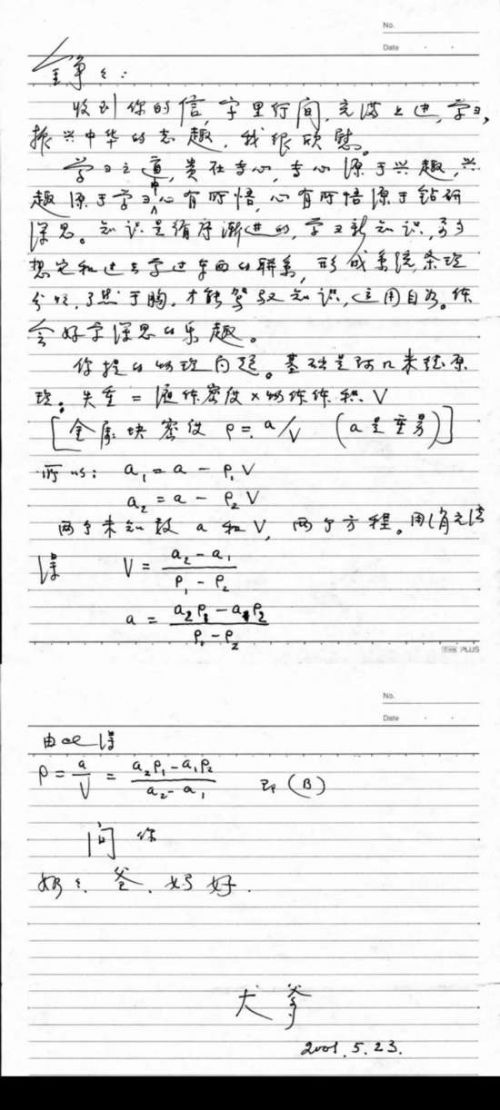 No.
Date
收到你的信,字里行间,充满上进,学习,
振兴中华的志趣,我很欣慰。
学习之道,贵在专心,专心源于兴趣,兴
趣源于学习中心有所悟,心有所悟源于钻研
深思。知识是循序渐进的,学习新知识,
想它和过去学过东西的联系,形成系统,条理
分明,了然于胸,才能驾驭知识,运用自如。体
会好学深思的乐趣。
你提的物理问题。基础是阿几米德原
理。失重 = 液体密度 × 物体体积 V
[金属块密度 ρ = a/V (a是重量)]
所以: a₁ = a - ρ₁V
a₂ = a - ρ₂V
两个未知数 a 和 V, 两个方程。用消元法
得 V = (a₂ - a₁)/(ρ₁ - ρ₂)
a = (a₂ρ₁ - a₁ρ₂)/(ρ₁ - ρ₂)
PLUS
No.
Date
由此得
ρ = a/V = (a₂ρ₁ - a₁ρ₂)/(a₂ - a₁) 即 (B)
问你
奶奶、爸、妈好.
大爷
2001.5.23.